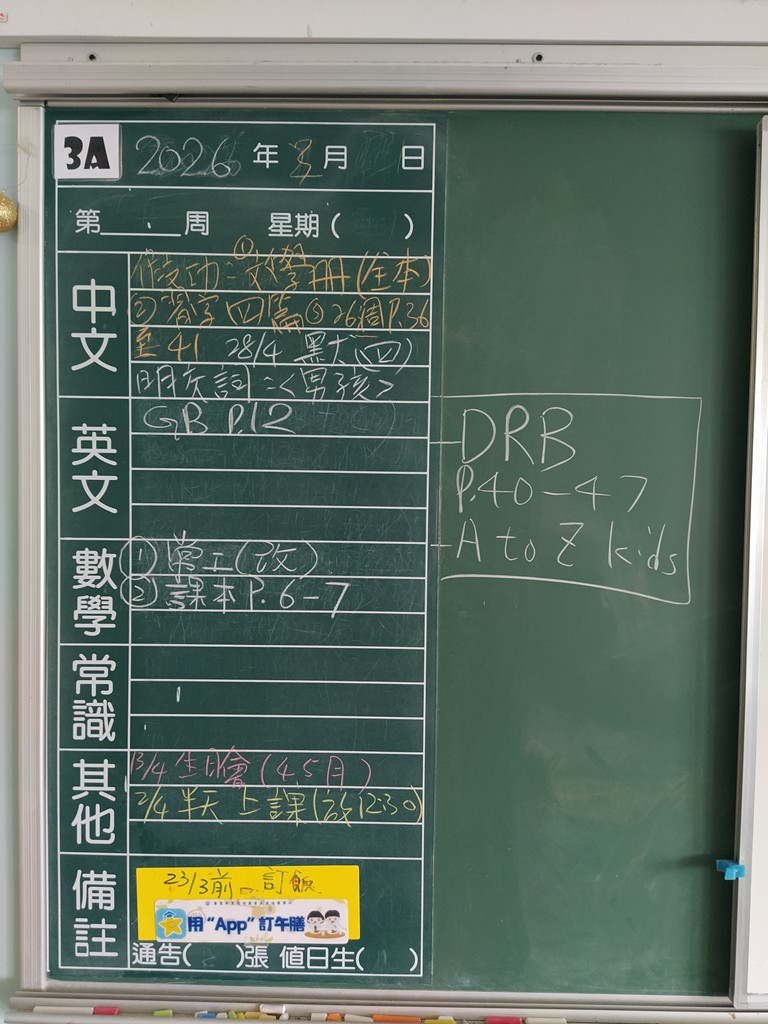 3A 2026 年 3 月 日
第 周 星期( )
中文
復改功:①文學冊(全本)
②習字四篇③26週P.36
至41 28/4 黑大(四)
明交詞:<男孩>
英文
GB P.12
DRB
P.40-47
A to Z kids
數學
① 常工(改)
② 課本P.6-7
常識
其他
13/4 生日會(4,5月)
2/4 半天上課(放12:30)
備註
23/3前 訂飯
用“App”訂午膳
通告( )張 值日生( )